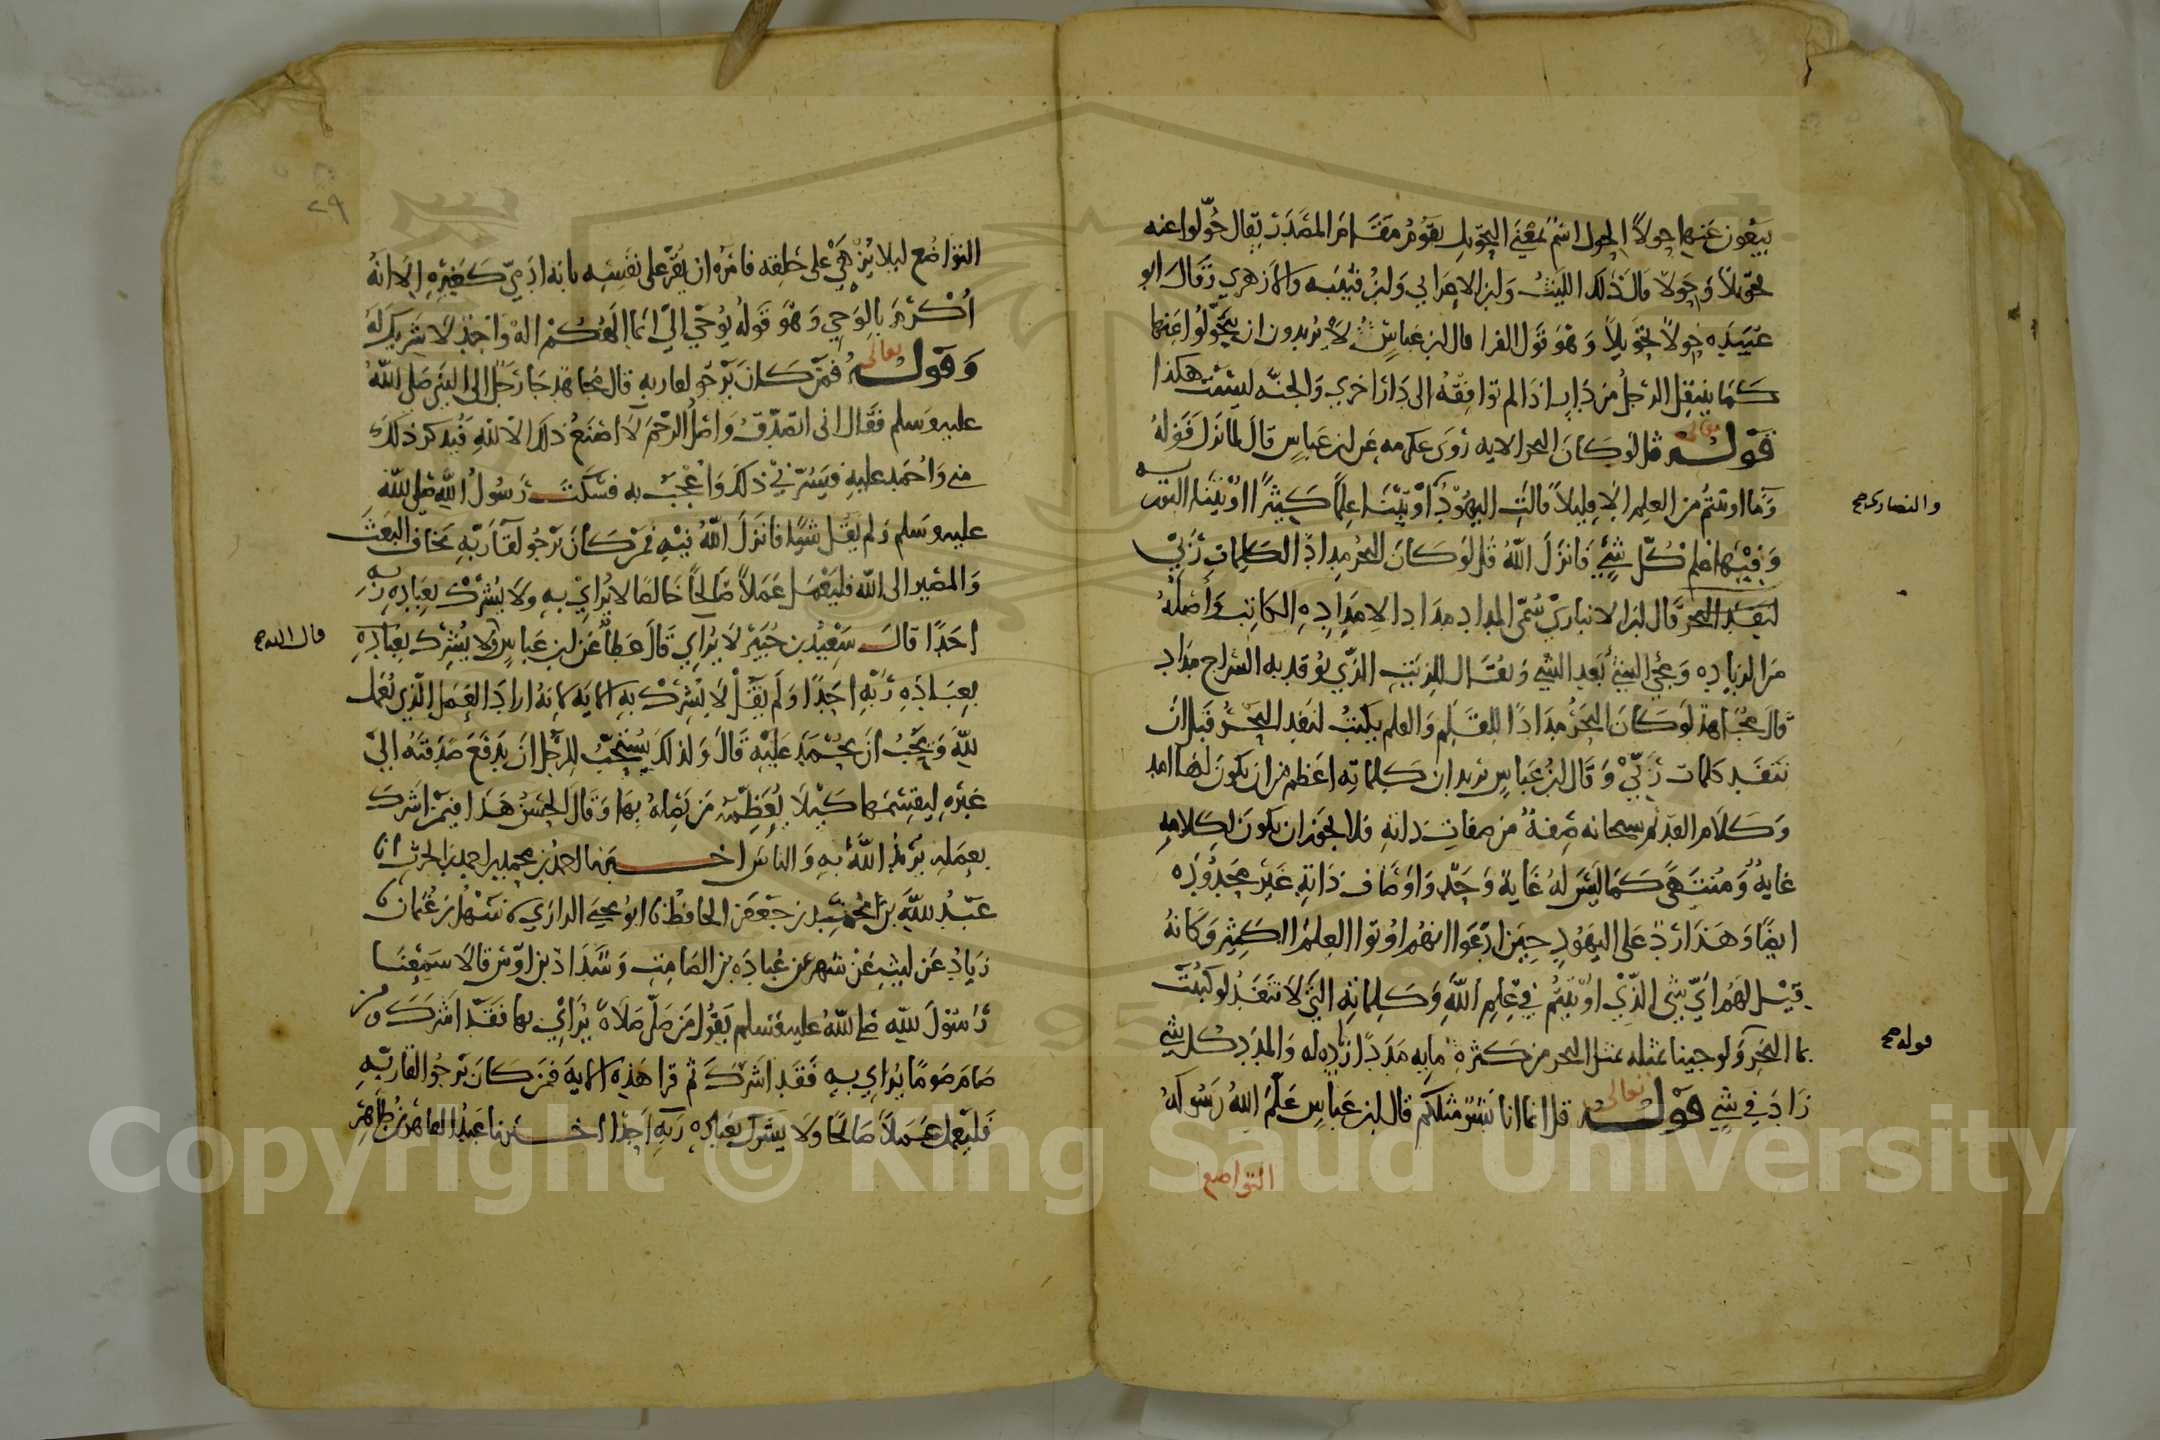 يبغون عنها حولا الحول اسم بمعنى التحويل يقوم مقام المصدر يقال حولوا عنه
تحويلا وحولا قال ذلك الليث وابن الاعرابي وابن قتيبه والازهري وقال ابو
عبيده حولا تحويلا وهو قول الفرا قال ابن عباس لا يريدون ان يتحولوا عنها
كما ينتقل الرجل من دار اذا لم توافقه الى دار اخرى والجنه ليست هكذا
قوله تعالى قل لو كان البحر الايه روى عكرمه عن ابن عباس قال لما نزل قوله
وما اوتيتم من العلم الا قليلا قالت اليهود اوتينا علما كثيرا اوتينا التوريه
والنصارى صح
وفيها علم كل شيء فانزل الله قل لو كان البحر مدادا لكلمات ربي
لنفد البحر قال ابن الانباري سمي المداد مدادا لامداده الكاتب واصله
من الزياده ومجي الشي بعد الشي ويقال للزيت الذي يوقد به السراج مداد
قال مجاهد لو كان البحر مدادا للقلم والقلم يكتب لنفد البحر قبل ان
تنفد كلمات ربي وقال ابن عباس يريد ان كلماته اعظم من ان يكون لها امد
وكلام القديم سبحانه صفة من صفات ذاته فلا يجوز ان يكون لكلامه
غاية ومنتهى كما ليس له غاية وحد واوصاف ذاته غير محدوده
ايضا وهذا رد على اليهود حين ادعوا انهم اوتوا العلم الكثير وكانه
قيل لهم اي شي الذي اوتيتم في علم الله وكلماته التي لا تنفد لو كتبت
بما البحر ولو جينا بمثله بمثل البحر من كثرة مايه مددا زياده له والمدد كل شي
قوله صح
زاد في شي قوله تعالى قل انما انا بشر مثلكم قال ابن عباس علم الله رسوله
التواضع
٢٩
التواضع ليلا يزهى على خلقه فامره ان يقر على نفسه بانه ادمي كغيره الا انه
اكرم بالوحي وهو قوله يوحى الي انما الهكم اله واحد لا شريك له
وقوله تعالى فمن كان يرجو لقا ربه قال مجاهد جا رجل الى النبي صلى الله
عليه وسلم فقال اني اتصدق واصل الرحم لا اصنع ذلك الا لله فيذكر ذلك
مني واحمد عليه فيسرني ذلك واعجب به فسكت رسول الله صلى الله
عليه وسلم ولم يقل شيا فانزل الله فيه فمن كان يرجو لقا ربه يخاف البعث
والمصير الى الله فليعمل عملا صالحا خالصا لا يراي به ولا يشرك بعباده ربه
احدا قال سعيد بن جبير لا يراي قال عطا عن ابن عباس ولا يشرك بعباده
قال الله صح
بعباده ربه احدا ولم يقل لا يشرك به الايه لانه اراد العمل الذي يعمل
لله ويحب ان يحمد عليه قال ولذلك يستحب للرجل ان يدفع صدقته الى
غيره ليقسمها كيلا يعظمه من يصله بها وقال الحسن هذا فيمن اشرك
بعمله يريد الله به والناس اخبرنا احمد بن محمد بن احمد بن الحرث انا
عبد الله بن محمد بن جعفر الحافظ نا ابو يحيى الرازي نا سهل بن عثمان نا
زياد عن ليث عن شهر عن عباده بن الصامت وشداد بن اوس قالا سمعنا
رسول الله صلى الله عليه وسلم يقول من صلى صلاة يراي بها فقد اشرك ومن
صام صوما يراي به فقد اشرك ثم قرا هذه الاية فمن كان يرجو لقا ربه
فليعمل عملا صالحا ولا يشرك بعباده ربه احدا اخبرنا عبد القاهر بن طاهر
Copyright © King Saud University